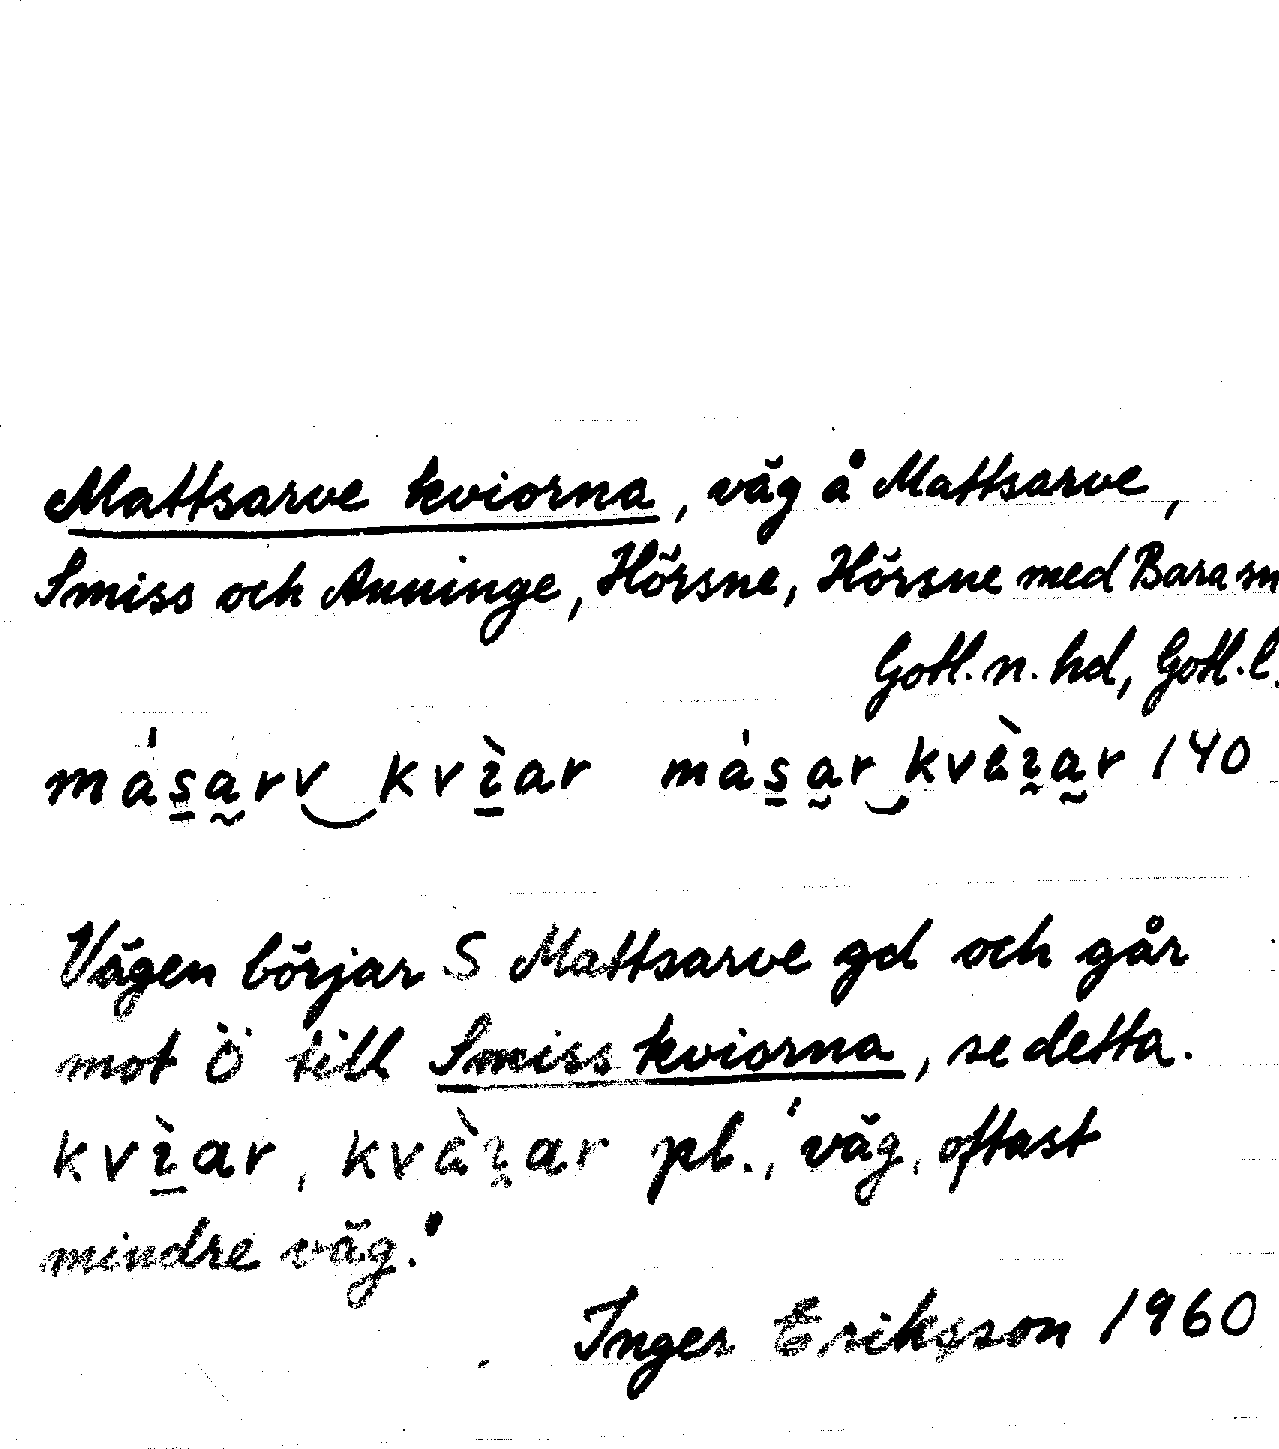 Mattsarve kviorna, väg å Mattsarve,
Smiss och Anninge, Hörsne, Hörsne med Bara sn
Gotl. n. hd, Gotl. l.
má̍s̲a̰rv‿kvɪ̲̀ar má̍s̲a̰r‿kvὲɪ̰a̰r 140
Vägen börjar S Mattsarve gd och går
mot Ö till Smiss kviorna, se detta.
kvɪ̲̀ar, kvὲɪ̰ar pl., 'väg, oftast
mindre väg.'
Inger Eriksson 1960